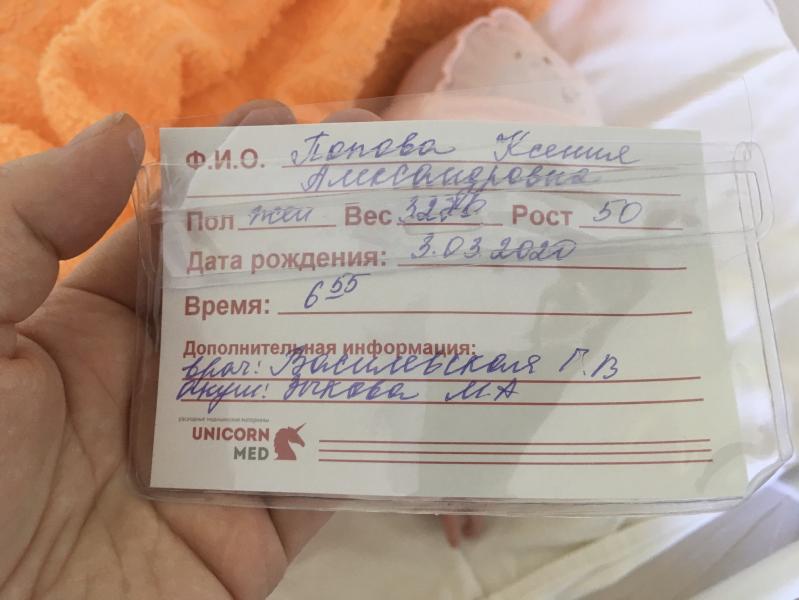 Ф.И.О. Попова Ксения
Александровна
Пол жен Вес Рост 50
Дата рождения: 3.03.2020
Время: 6 55
Дополнительная информация:
врач: Василевская Г.В
акуш: Зыкова М.А
расходные медицинские материалы
UNICORN
MED